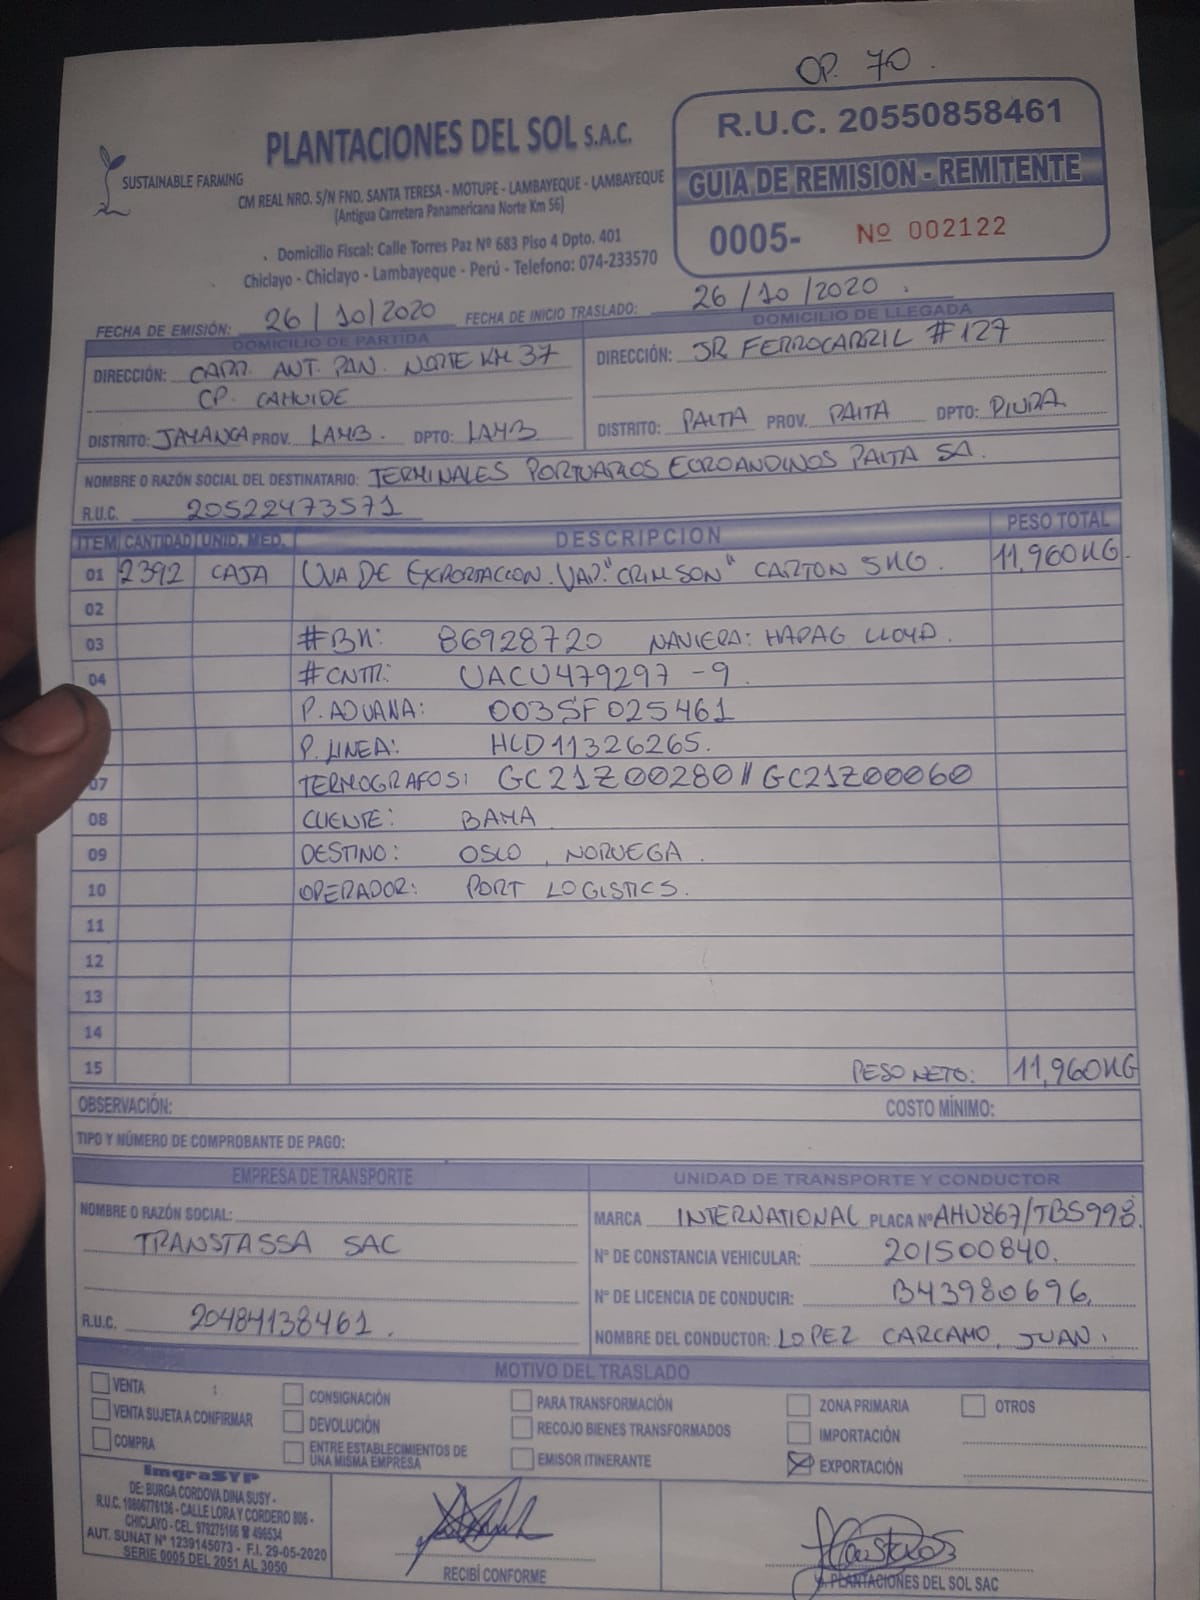 OP. 70.
PLANTACIONES DEL SOL S.A.C.
SUSTAINABLE FARMING
CM REAL NRO. S/N FND. SANTA TERESA - MOTUPE - LAMBAYEQUE - LAMBAYEQUE
(Antigua Carretera Panamericana Norte Km 56)
Domicilio Fiscal: Calle Torres Paz Nº 683 Piso 4 Dpto. 401
Chiclayo - Chiclayo - Lambayeque - Perú - Telefono: 074-233570
R.U.C. 20550858461
GUIA DE REMISION - REMITENTE
0005- Nº 002122
FECHA DE EMISIÓN: 26/10/2020 FECHA DE INICIO TRASLADO: 26/10/2020.
DOMICILIO DE PARTIDA
DIRECCIÓN: CARR. ANT. PAN. NORTE KM 37
CP. CAHUIDE
DISTRITO: JAYANCA PROV. LAMB. DPTO: LAMB
DOMICILIO DE LLEGADA
DIRECCIÓN: JR FERROCARRIL #127
DISTRITO: PAITA PROV. PAITA DPTO: PIURA
NOMBRE O RAZÓN SOCIAL DEL DESTINATARIO: TERMINALES PORTUARIOS EUROANDINOS PAITA SA.
R.U.C. 20522473571
ITEM CANTIDAD UNID. MED. DESCRIPCION PESO TOTAL
01 2392 CAJA UVA DE EXPORTACION. VAR. "CRIMSON" CARTON 5KG. 11,960KG.
02
03 #BK: 86928720 NAVIERA: HAPAG LLOYD.
04 #CNTR: UACU479297-9.
P. ADUANA: 003SF025461
P. LINEA: HLD11326265.
07 TERMOGRAFOS: GC21Z00280//GC21Z00060
08 CLIENTE: BAMA
09 DESTINO: OSLO, NORUEGA.
10 OPERADOR: PORT LOGISTICS.
11
12
13
14
15 PESO NETO: 11,960KG
OBSERVACIÓN: COSTO MÍNIMO:
TIPO Y NÚMERO DE COMPROBANTE DE PAGO:
EMPRESA DE TRANSPORTE
NOMBRE O RAZÓN SOCIAL:
TRANSTASSA SAC
R.U.C. 20484138461.
UNIDAD DE TRANSPORTE Y CONDUCTOR
MARCA INTERNATIONAL PLACA Nº AHU867/TBS998.
Nº DE CONSTANCIA VEHICULAR: 201500840.
Nº DE LICENCIA DE CONDUCIR: B43980696.
NOMBRE DEL CONDUCTOR: LOPEZ CARCAMO, JUAN.
MOTIVO DEL TRASLADO
VENTA
VENTA SUJETA A CONFIRMAR
COMPRA
CONSIGNACIÓN
DEVOLUCIÓN
ENTRE ESTABLECIMIENTOS DE
UNA MISMA EMPRESA
PARA TRANSFORMACIÓN
RECOJO BIENES TRANSFORMADOS
EMISOR ITINERANTE
ZONA PRIMARIA
IMPORTACIÓN
EXPORTACIÓN
OTROS
ImgraSYP
DE: BURGA CORDOVA DINA SUSY -
R.U.C. 10806776136 - CALLE LORA Y CORDERO 806 -
CHICLAYO - CEL. 979275166 ☎ 496534
AUT. SUNAT Nº 1239145073 - F.I. 29-05-2020
SERIE 0005 DEL 2051 AL 3050
RECIBÍ CONFORME
PLANTACIONES DEL SOL SAC